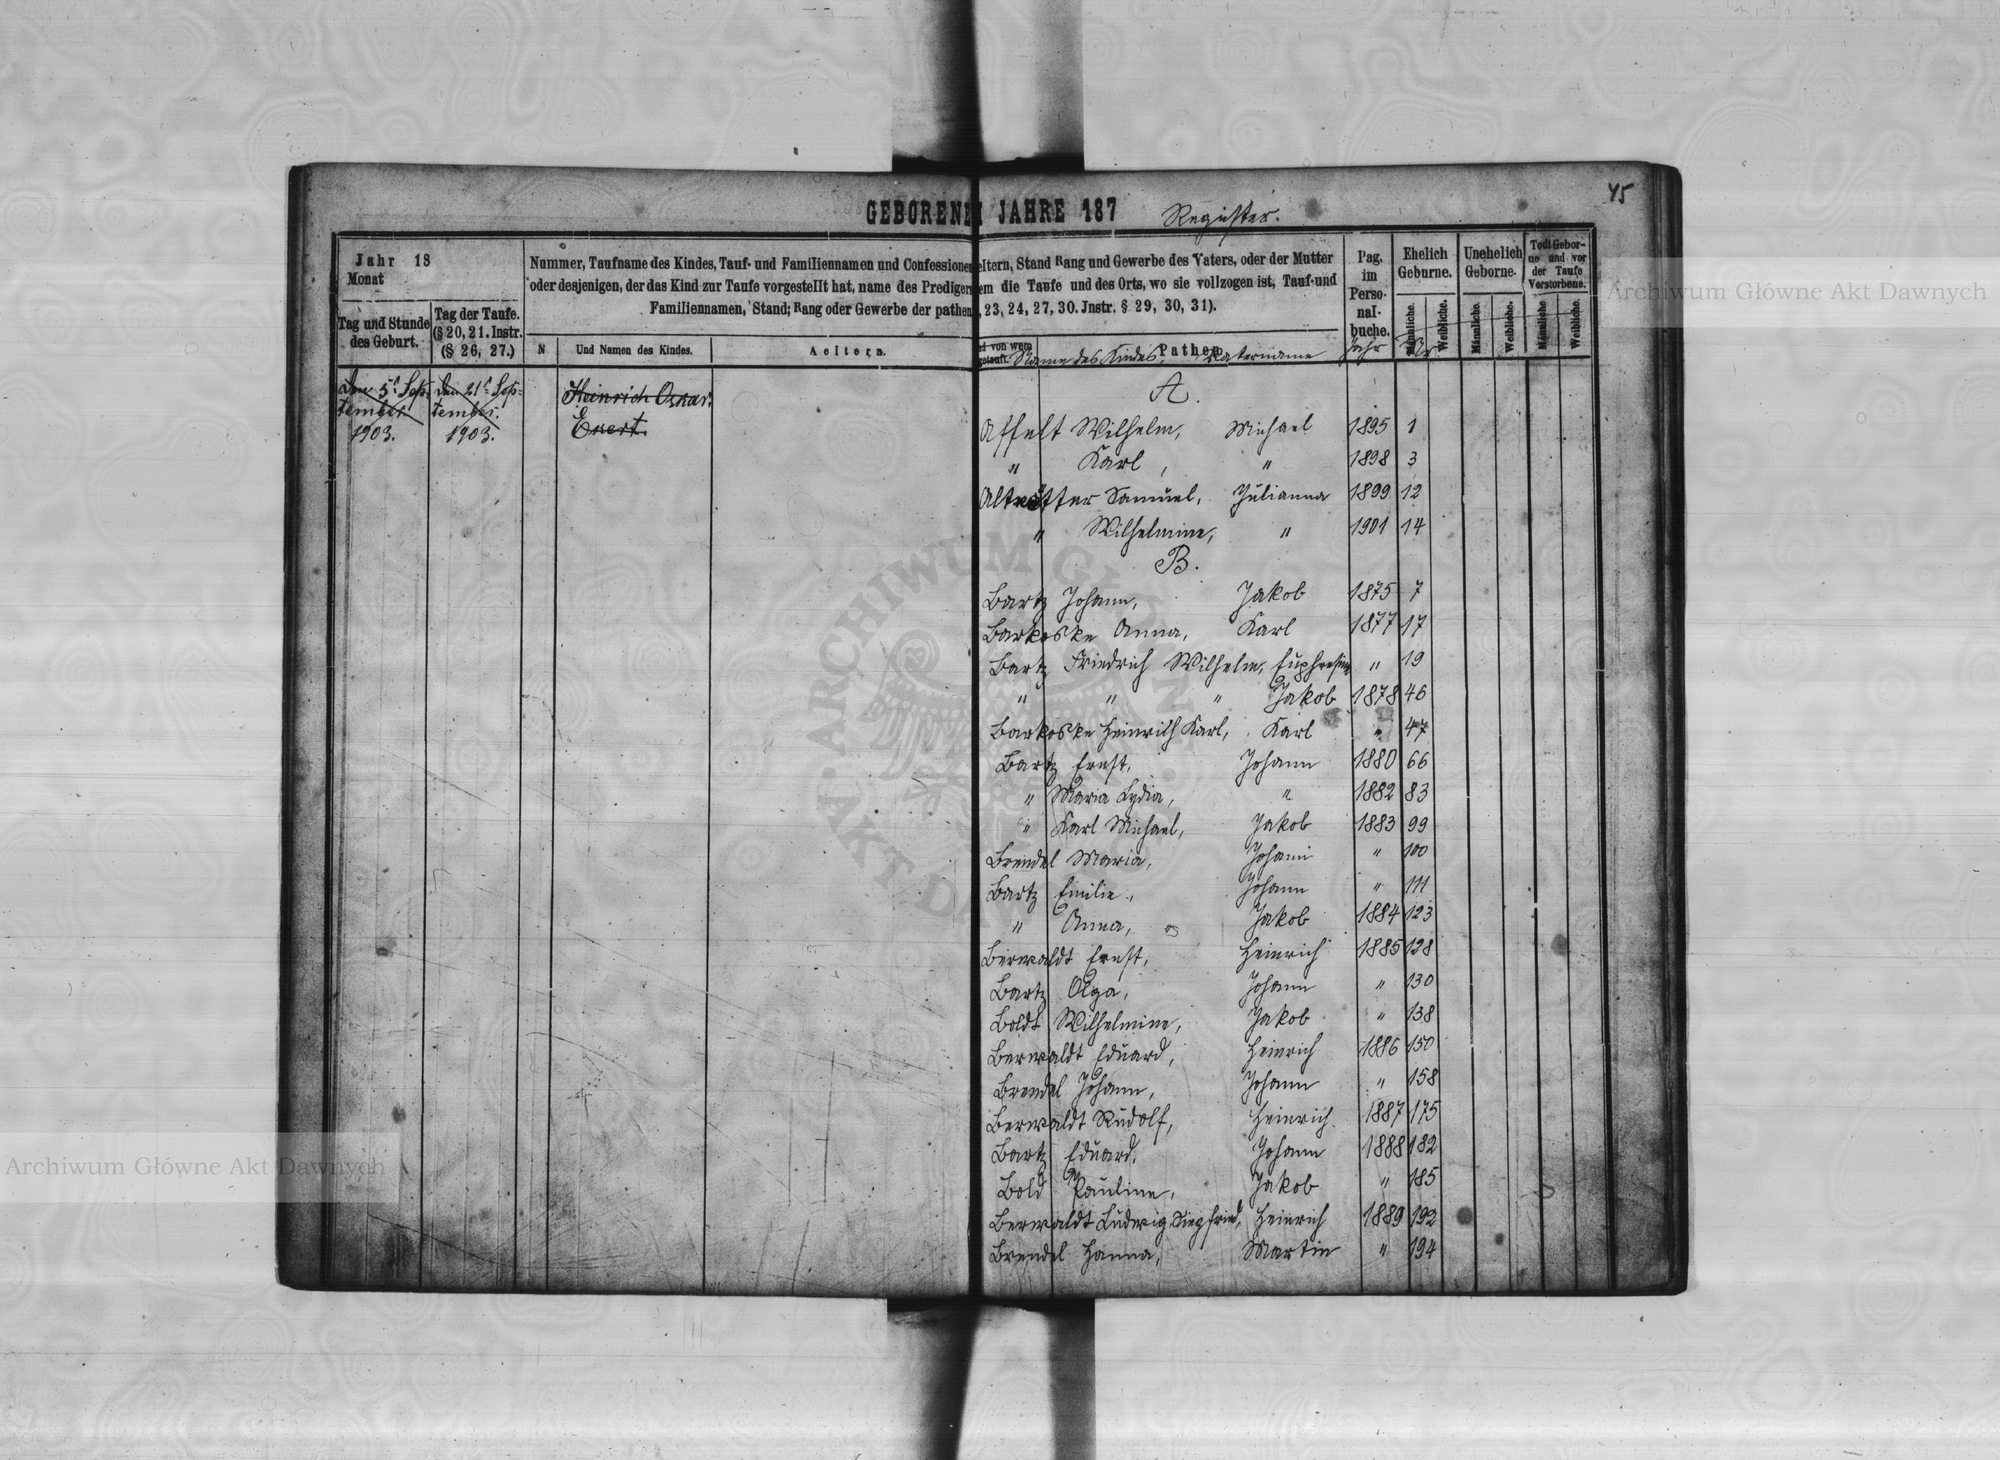 45
GEBORENE JAHRE 187 Register.
Jahr 18
Monat
Tag und Stunde des Geburt.
Tag der Taufe. (§ 20, 21. Instr. (§ 26, 27.)
Nummer, Taufname des Kindes, Tauf- und Familiennamen und Confessionen
oder desjenigen, der das Kind zur Taufe vorgestellt hat, name des Predigers
Familiennamen, Stand; Rang oder Gewerbe der pathen
N
Und Namen des Kindes.
Aeltern.
den 5t Sep-
tember
1903.
den 21t Sep-
tember.
1903.
Heinrich Oskar
Ekert.
eltern, Stand Rang und Gewerbe des Vaters, oder der Mutter
em die Taufe und des Orts, wo sie vollzogen ist, Tauf-und
, 23, 24, 27, 30. Jnstr. § 29, 30, 31).
d von wem getauft.
Pathen
Name des Kindes. Vatername
Pag. im Perso- nal- buche.
Jahr
Ehelich Geburne.
Unehelich Geborne.
Todt Gebor- ne und vor der Taufe Verstorbene.
Männliche. Weibliche.
Männliche. Weibliche.
Männliche Weibliche.
Nr
A.
Affelt Wilhelm, Michael 1895 1
" Karl, " 1898 3
Samuel, Julianna 1899 12
" Wilhelmine, " 1901 14
B.
Bartz Johann, Jakob 1875 7
Barkoske Anna, Karl 1877 17
Bartz Friedrich Wilhelm, " 19
" " " Jakob 1878 46
Barkoske Heinrich Karl, Karl " 47
Bartz Ernst, Johann 1880 66
" Maria Lydia, " 1882 83
" Karl Michael, Jakob 1883 99
Brendel Maria, Johann " 100
Bartz Emilie, Johann " 111
" Anna, Jakob 1884 123
Berwaldt Ernst, Heinrich 1885 128
Bartz Olga, Johann " 130
Boldt Wilhelmine, Jakob " 138
Berwaldt Eduard, Heinrich 1886 150
Brendel Johann, Johann " 158
Berwaldt Rudolf, Heinrich 1887 175
Bartz Eduard, Johann 1888 182
Bold Pauline, Jakob " 185
Berwaldt Ludwig Siegfried, Heinrich 1889 192
Brendel Hanna, Martin " 194
Archiwum Główne Akt Dawnych
Archiwum Główne Akt Dawnych